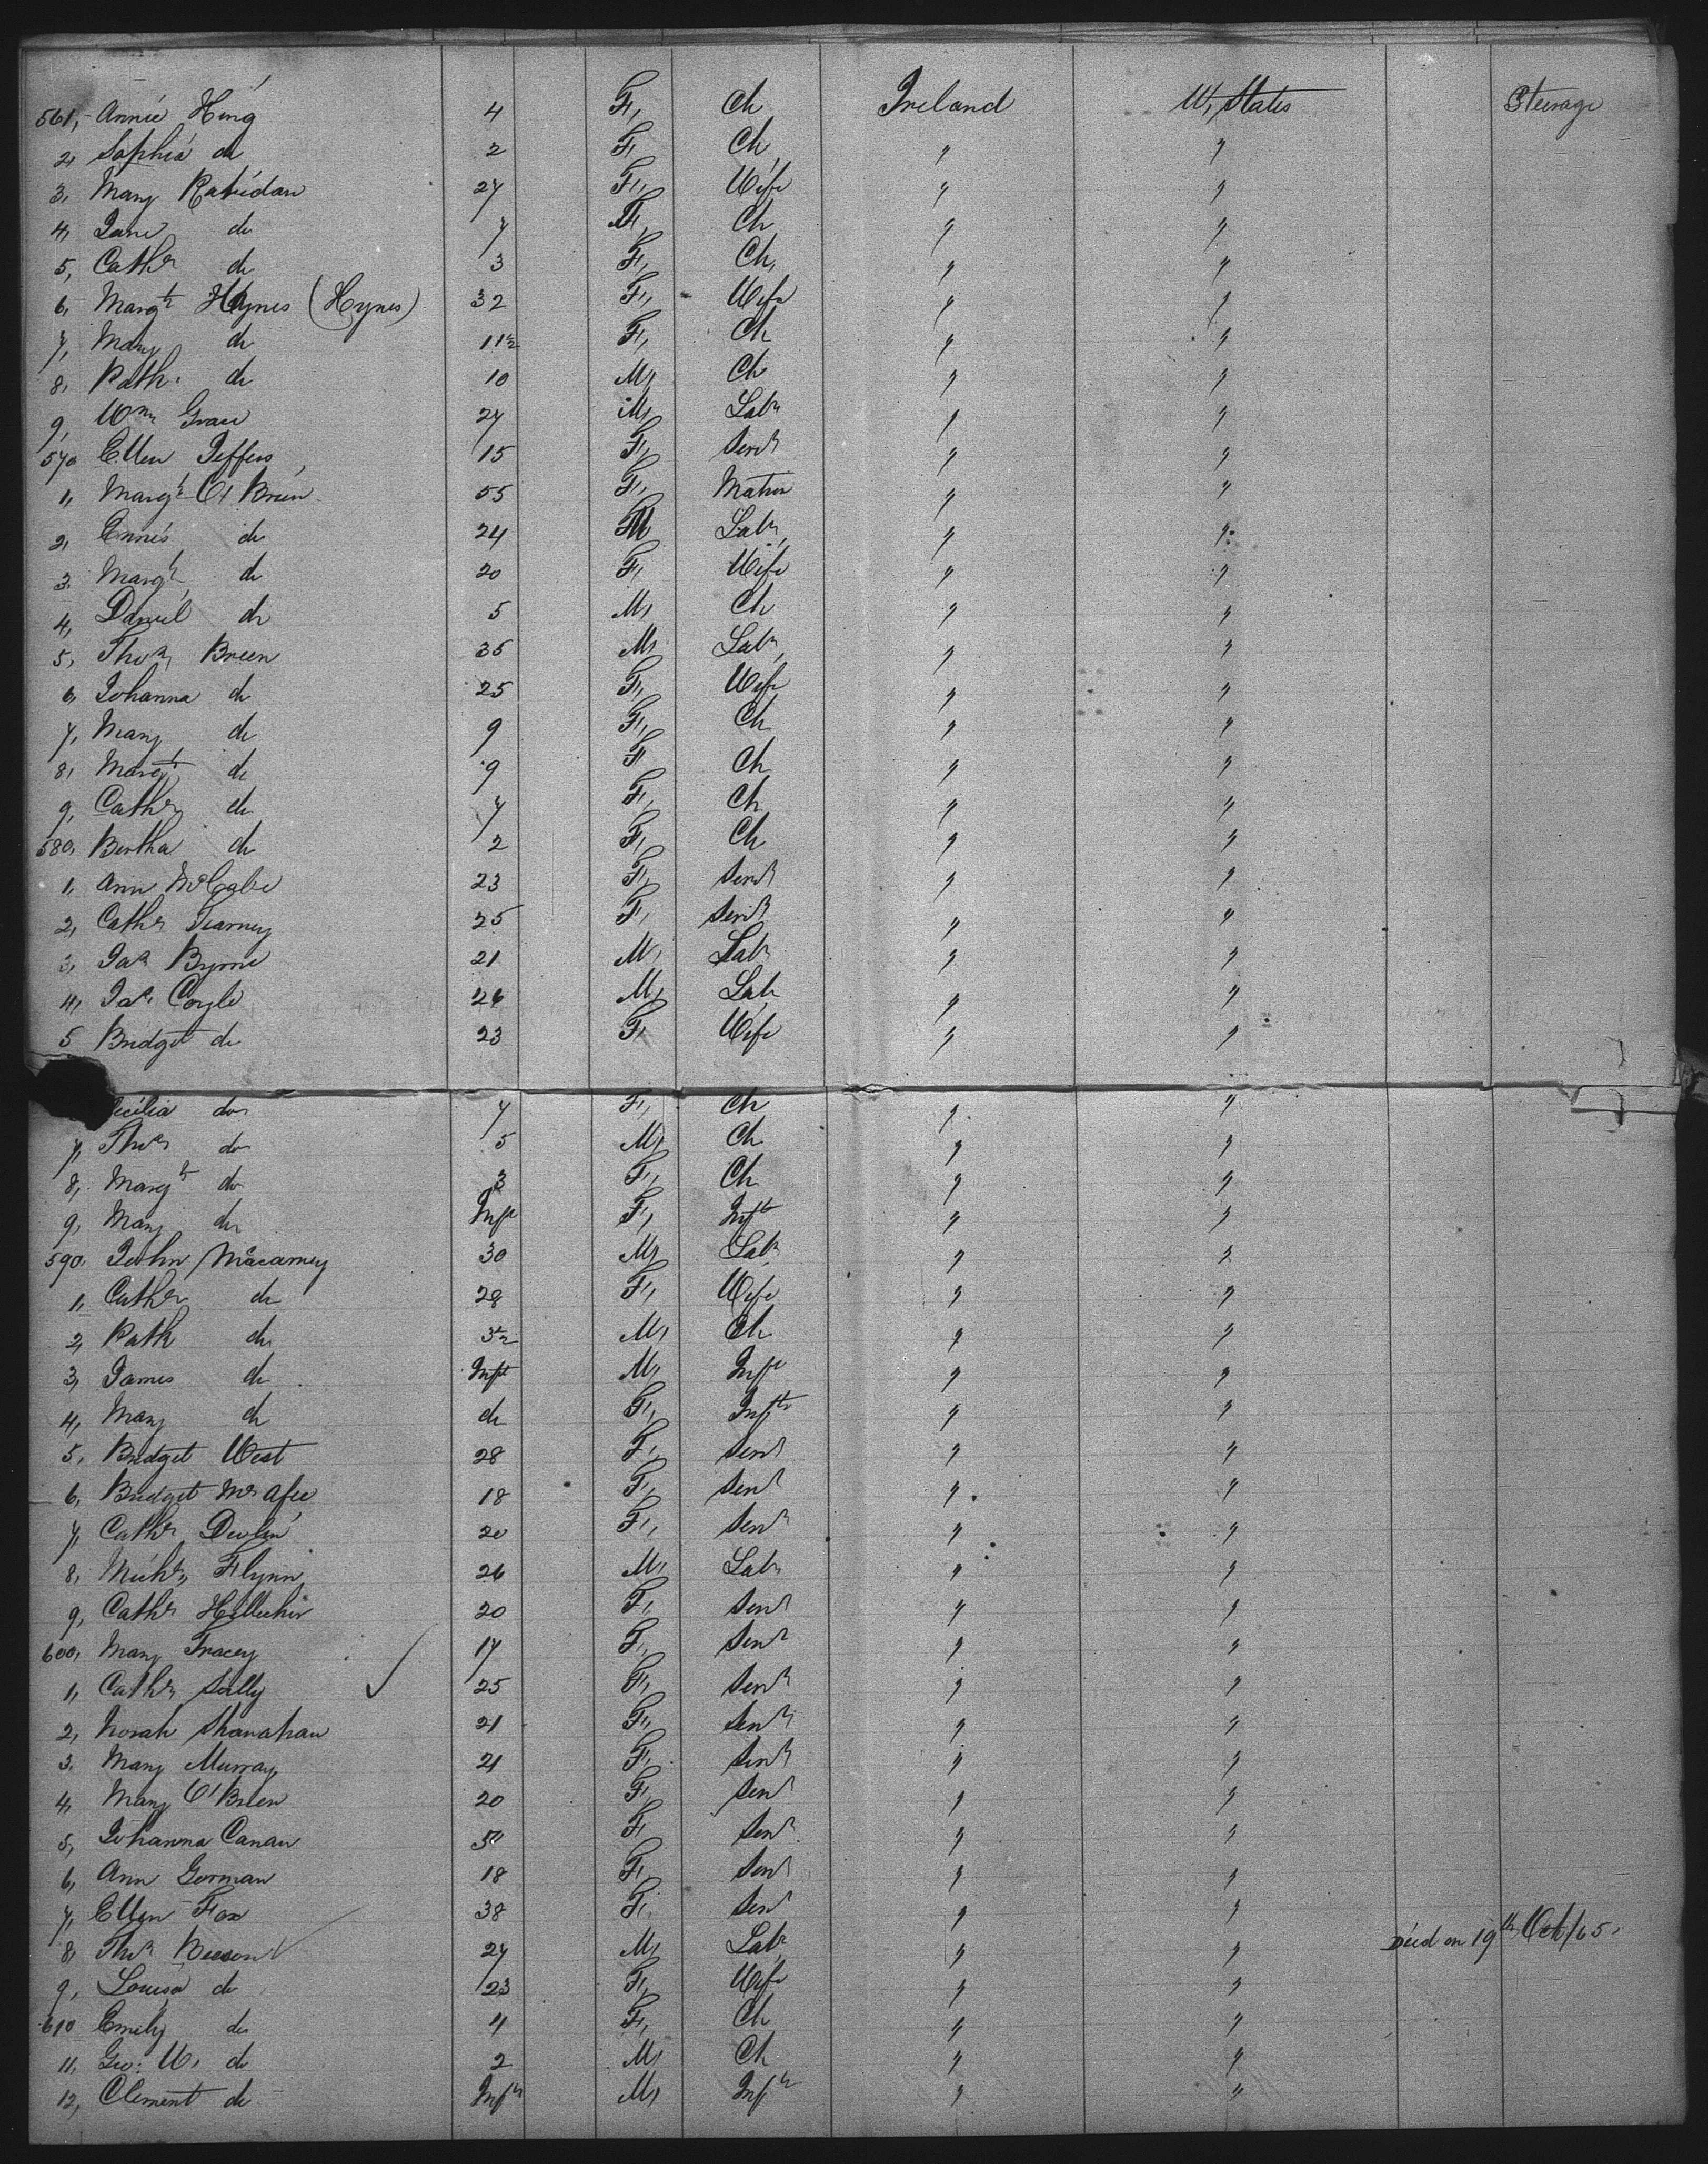 561, Annie King 4 F, Ch Ireland U, States Steerage
2, Sophia do 2 F, Ch " "
3, Mary 27 F, Wife " "
4, Jane do 7 F, Ch " "
5, Cathe do 3 F, Ch, " "
6, Margt Hynes (Hynes) 32 F, Wife " "
7, Mary do 11½ F, Ch " "
8, Patk. do 10 M, Ch " "
9, Wm Grace 27 M, Labr " "
570 Ellen Jeffers 15 F, Servt " "
1, Margt O'Brien 55 F, Matron " "
2, do 24 M Labr, " "
3, Margt do 20 F, Wife " "
4, Daniel do 5 M, Ch " "
5, Thos, Breen 35 M, Labr, " "
6, Johanna do 25 F, Wife " "
7, Mary do 9 F, Ch " "
8, Margt do 9 F, Ch " "
9, Cathe do 7 F, Ch " "
580, Bertha do 2 F, Ch " "
1, Ann McCabe 23 F, Servt " "
2, Cathe 25 F, Servt " "
3, Jas Byrne 21 M, Labr " "
4, Jas. Coyle 26 M, Labr " "
5 Bridget do 23 F, Wife " "
ecilia do 7 F, Ch " "
7, Thos do 5 M, Ch " "
8, Margt do 3 F, Ch " "
9, Mary do Inft F, Inft " "
590, John 30 M, Labr " "
1, Cathe do 28 F, Wife " "
2, Patk do 3½ M, Ch " "
3, James do Inft M, Inft " "
4, Mary do do F, Inft " "
5, Bridget West 28 F, Servt " "
6, Bridget McAfee 18 F, Servt " "
7, Cathe Devlin 20 F, Servt " "
8, Michl, Flynn 26 M, Labr " "
9, Cathe 20 F, Servt " "
600, Mary Tracey 17 F, Servt " "
1, Cathe Sally 25 F, Servt " "
2, Norah Shanahan 21 F, Servt " "
3, Mary Murray, 21 F, Servt " "
4, Mary O'Brien 20 F, Servt " "
5, Johanna Canan F, Servt " "
6, Ann Gorman 18 F, Servt " "
7, Ellen Fox 38 F, Servt " "
8, Thos Beeson 27 M, Labr " " Died on 19th Oct/65.
9, Louisa do 23 F, Wife " "
610 Emily do 4 F, Ch " "
11, Geo: W, do 2 M, Ch " "
12, Clement do Inft M, Inft " "